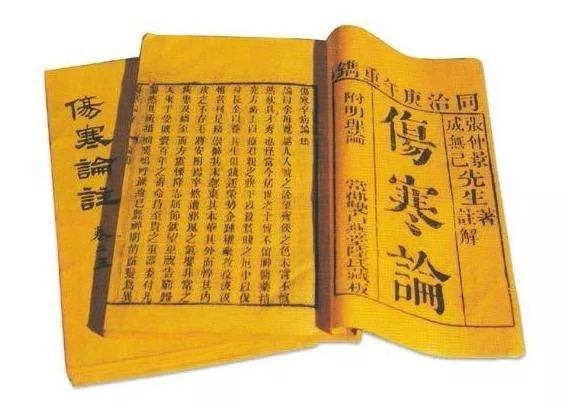 同治庚午重鐫
張仲景先生著
成無己註解
傷寒論
附明理論
常郡雙白燕堂陸氏藏板
傷寒卒病論集
論曰余每覽越人入虢之診望齊侯之色未嘗不慨
然歎其才秀也怪當今居世之士曾不留神醫藥精
究方術上以療君親之疾下以救貧賤之厄中以保
身長全以養其生但競逐榮勢企踵權豪孜孜汲汲
惟名利是務崇飾其末忽棄其本華其外而悴其內
皮之不存毛將安附焉卒然遭邪風之氣嬰非常之
疾患及禍至而方震慄降志屈節欽望巫祝告窮歸
天束手受敗賫百年之壽命持至貴之重器委付凡
醫恣其所措咄嗟嗚呼厥身已斃神明消滅變為異
傷寒論註
卷三